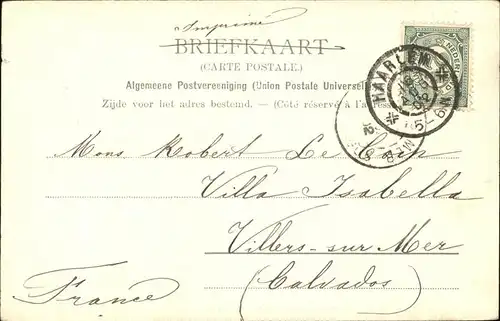 Imprimé
BRIEFKAART
(CARTE POSTALE.)
Algemeene Postvereeniging (Union Postale Universelle)
Zijde voor het adres bestemd. — (Côté réservé à l'adresse)
HAARLEM
NEDER
5-6 N
Mons Robert Le
Villa Isabella
Villers-sur Mer
(Calvados)
France